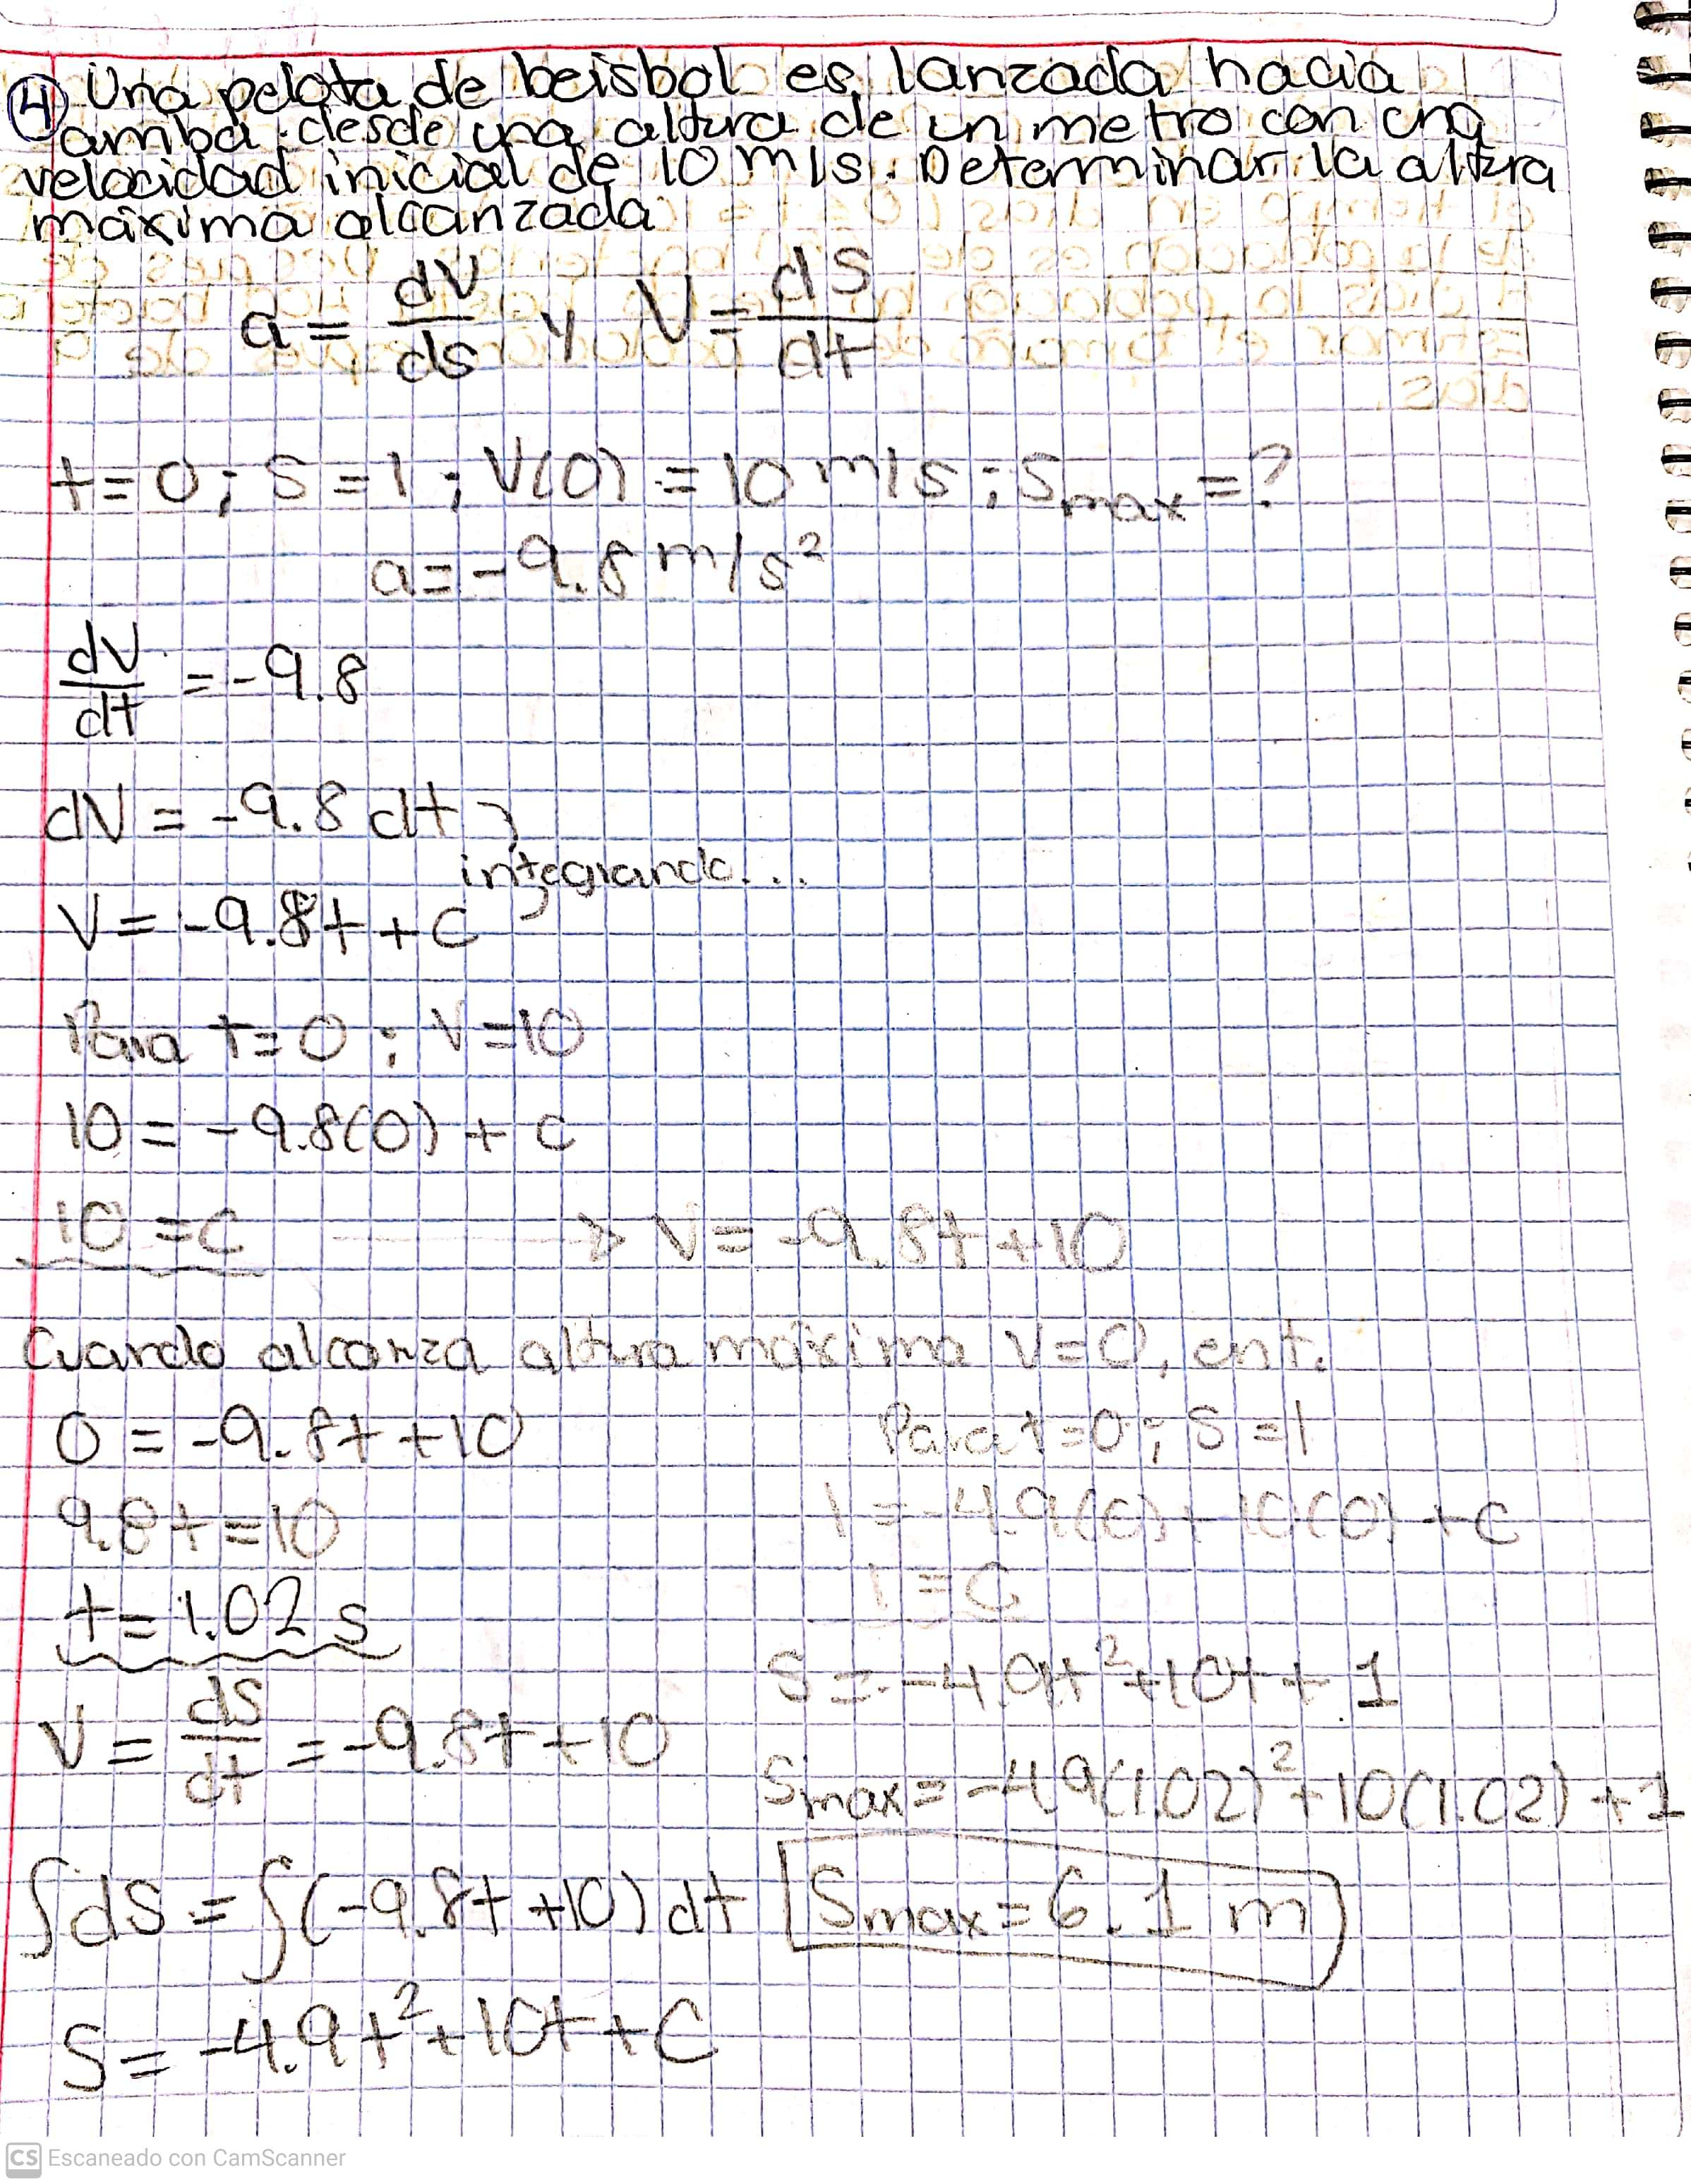 ④ Una pelota de beisbol es lanzada hacia
arriba desde una altura de un metro con una
velocidad inicial de 10 m/s. Determinar la altura
máxima alcanzada
a = dv/ds y V = ds/dt
t=0; S=1; V(0) = 10 m/s; Smax=?
a=-9.8 m/s²
dv/dt = -9.8
dv = -9.8 dt
integrando...
V = -9.8t + C
Para t=0; V=10
10 = -9.8(0) + C
10 = C → V= -9.8t +10
Cuando alcanza altura máxima V=0, ent.
0 = -9.8t +10
9.8t=10
t=1.02 s
V = ds/dt = -9.8t +10
∫ds = ∫(-9.8t +10) dt
S= -4.9t² + 10t + C
Para t=0; S=1
1 = -4.9(0) + 10(0) + C
1 = C
S = -4.9t² +10t + 1
Smax= -4.9(1.02)² +10(1.02) +1
Smax=6.1 m
CS Escaneado con CamScanner